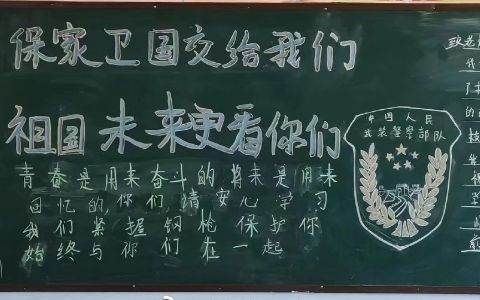 保家卫国交给我们
祖国未来更看你们
青春是用来奋斗的将来是用来
回忆的你们,请安心学习
我们紧握钢枪保护你
始终与你们在一起
中国人民
武装警察部队